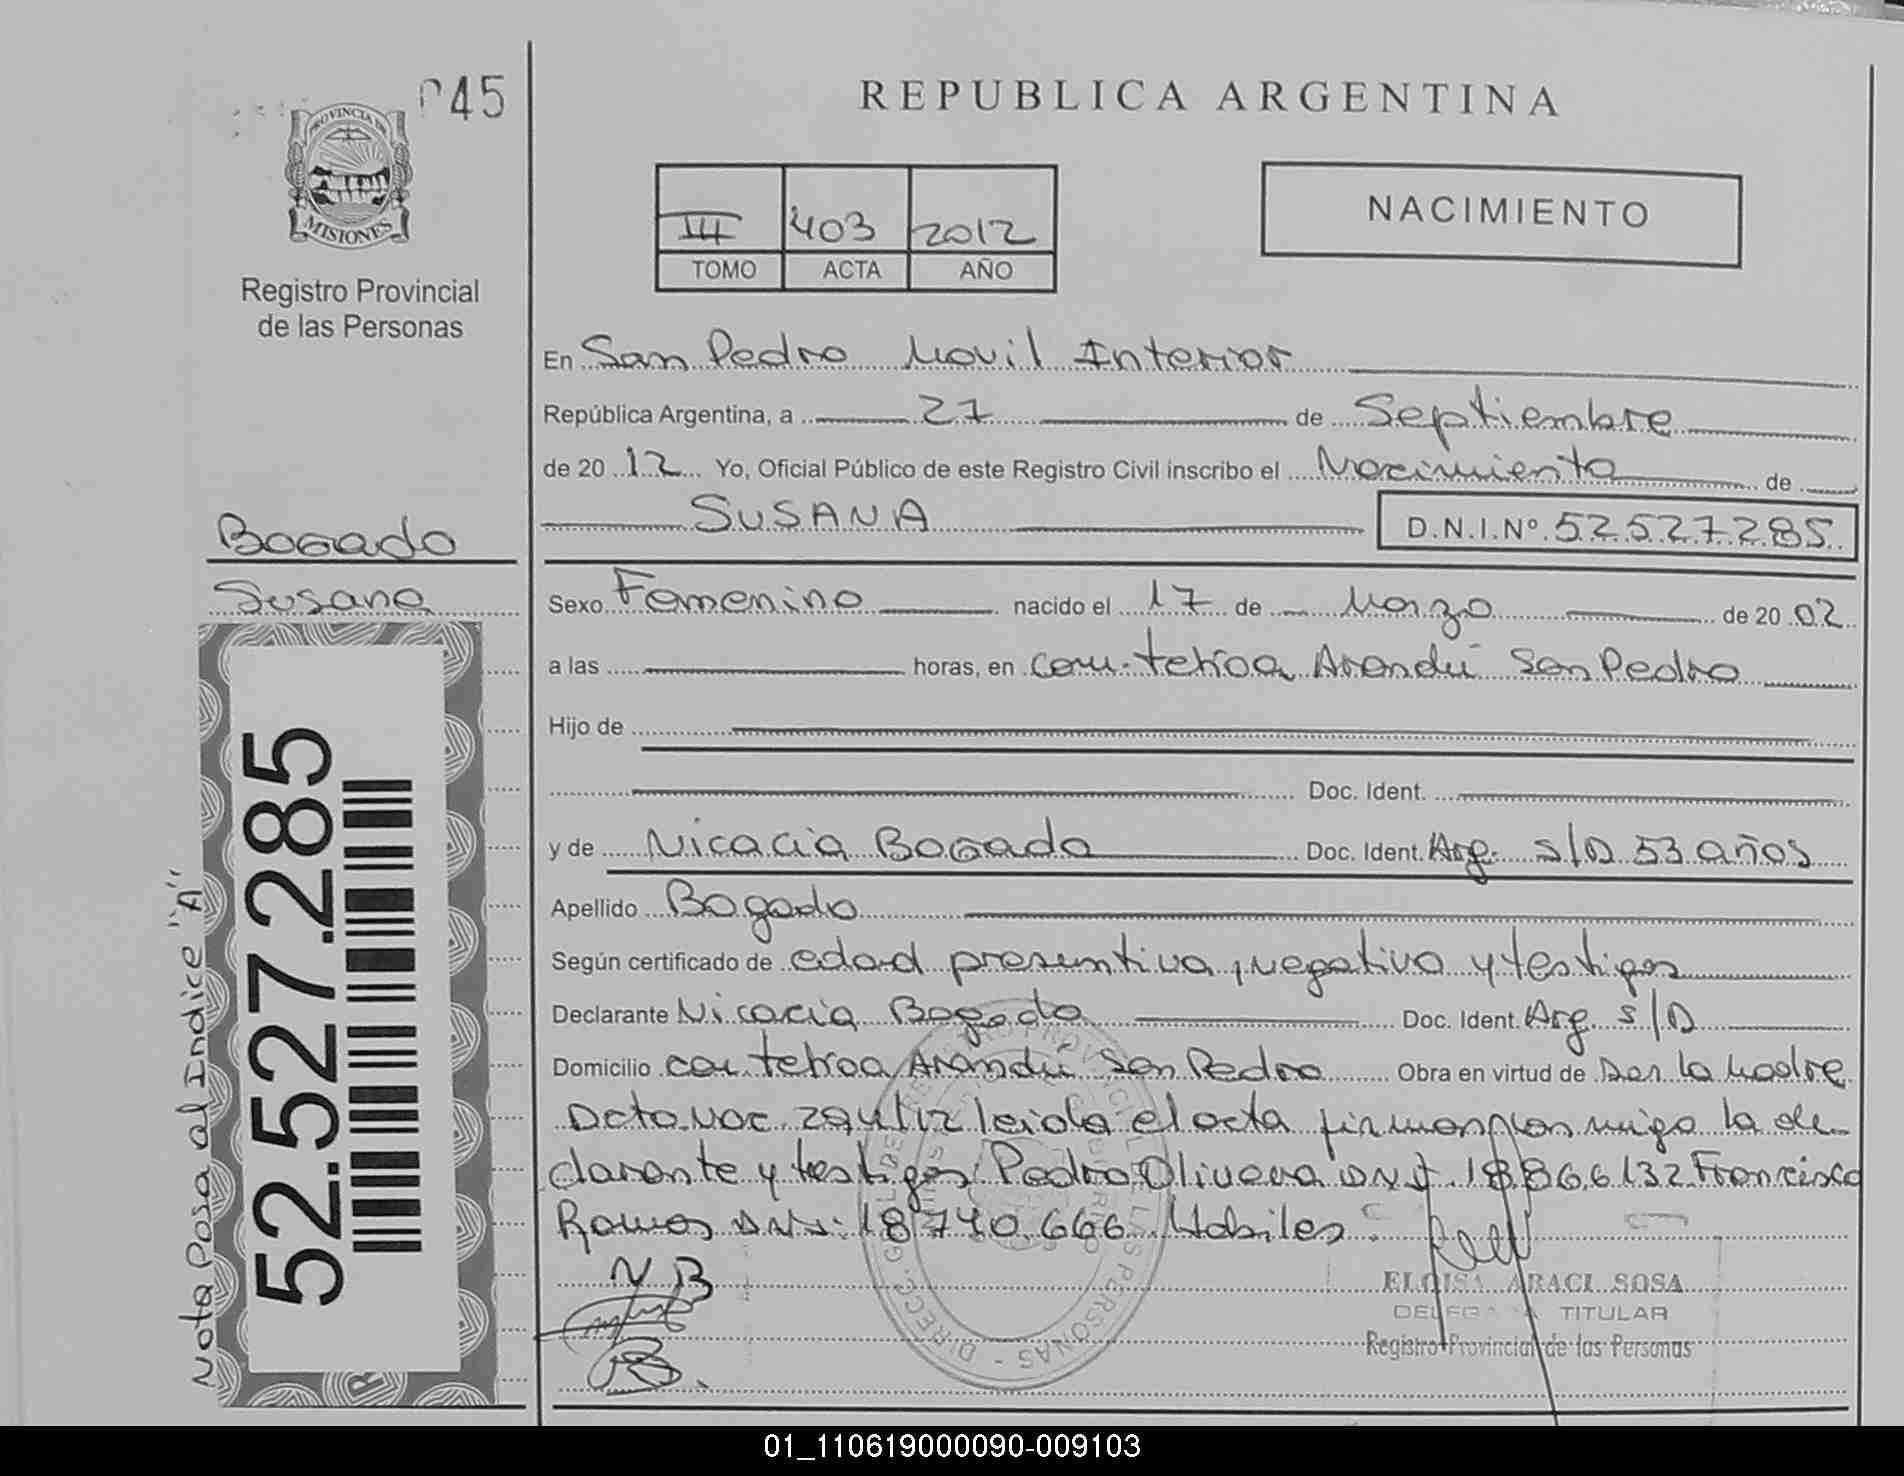 045
PROVINCIA DE
MISIONES
Registro Provincial
de las Personas
REPUBLICA ARGENTINA
III 403 2012
TOMO ACTA AÑO
NACIMIENTO
En San Pedro Movil Interior
República Argentina, a 27 de Septiembre
de 2012 Yo, Oficial Público de este Registro Civil inscribo el Nacimiento de
SUSANA D.N.I.Nº 52.527.285
Bogado
Susana
Sexo Femenino nacido el 17 de Marzo de 2002
a las horas, en Com. tekoa Arandú San Pedro
Hijo de
Doc. Ident.
y de Nicacia Bogado Doc. Ident. Arg. s/D 53 años
Apellido Bogado
Según certificado de edad presuntiva, negativa y testigos
Declarante Nicacia Bogado Doc. Ident. Arg. s/D
Domicilio com tekoa Arandú San Pedro Obra en virtud de Ser la Madre
Dcto. Nac. 294/12 leida el acta firman por migo la de-
clarante y testigos Pedro Olivera DNI. 18.866.132 Francisco
Ramos DNI: 18.740.666 Habiles.
N B
ELOISA ARACI SOSA
DELEGADA TITULAR
Registro Provincial de las Personas
52.527.285
Nota Posa al Indice "A"
01_110619000090-009103